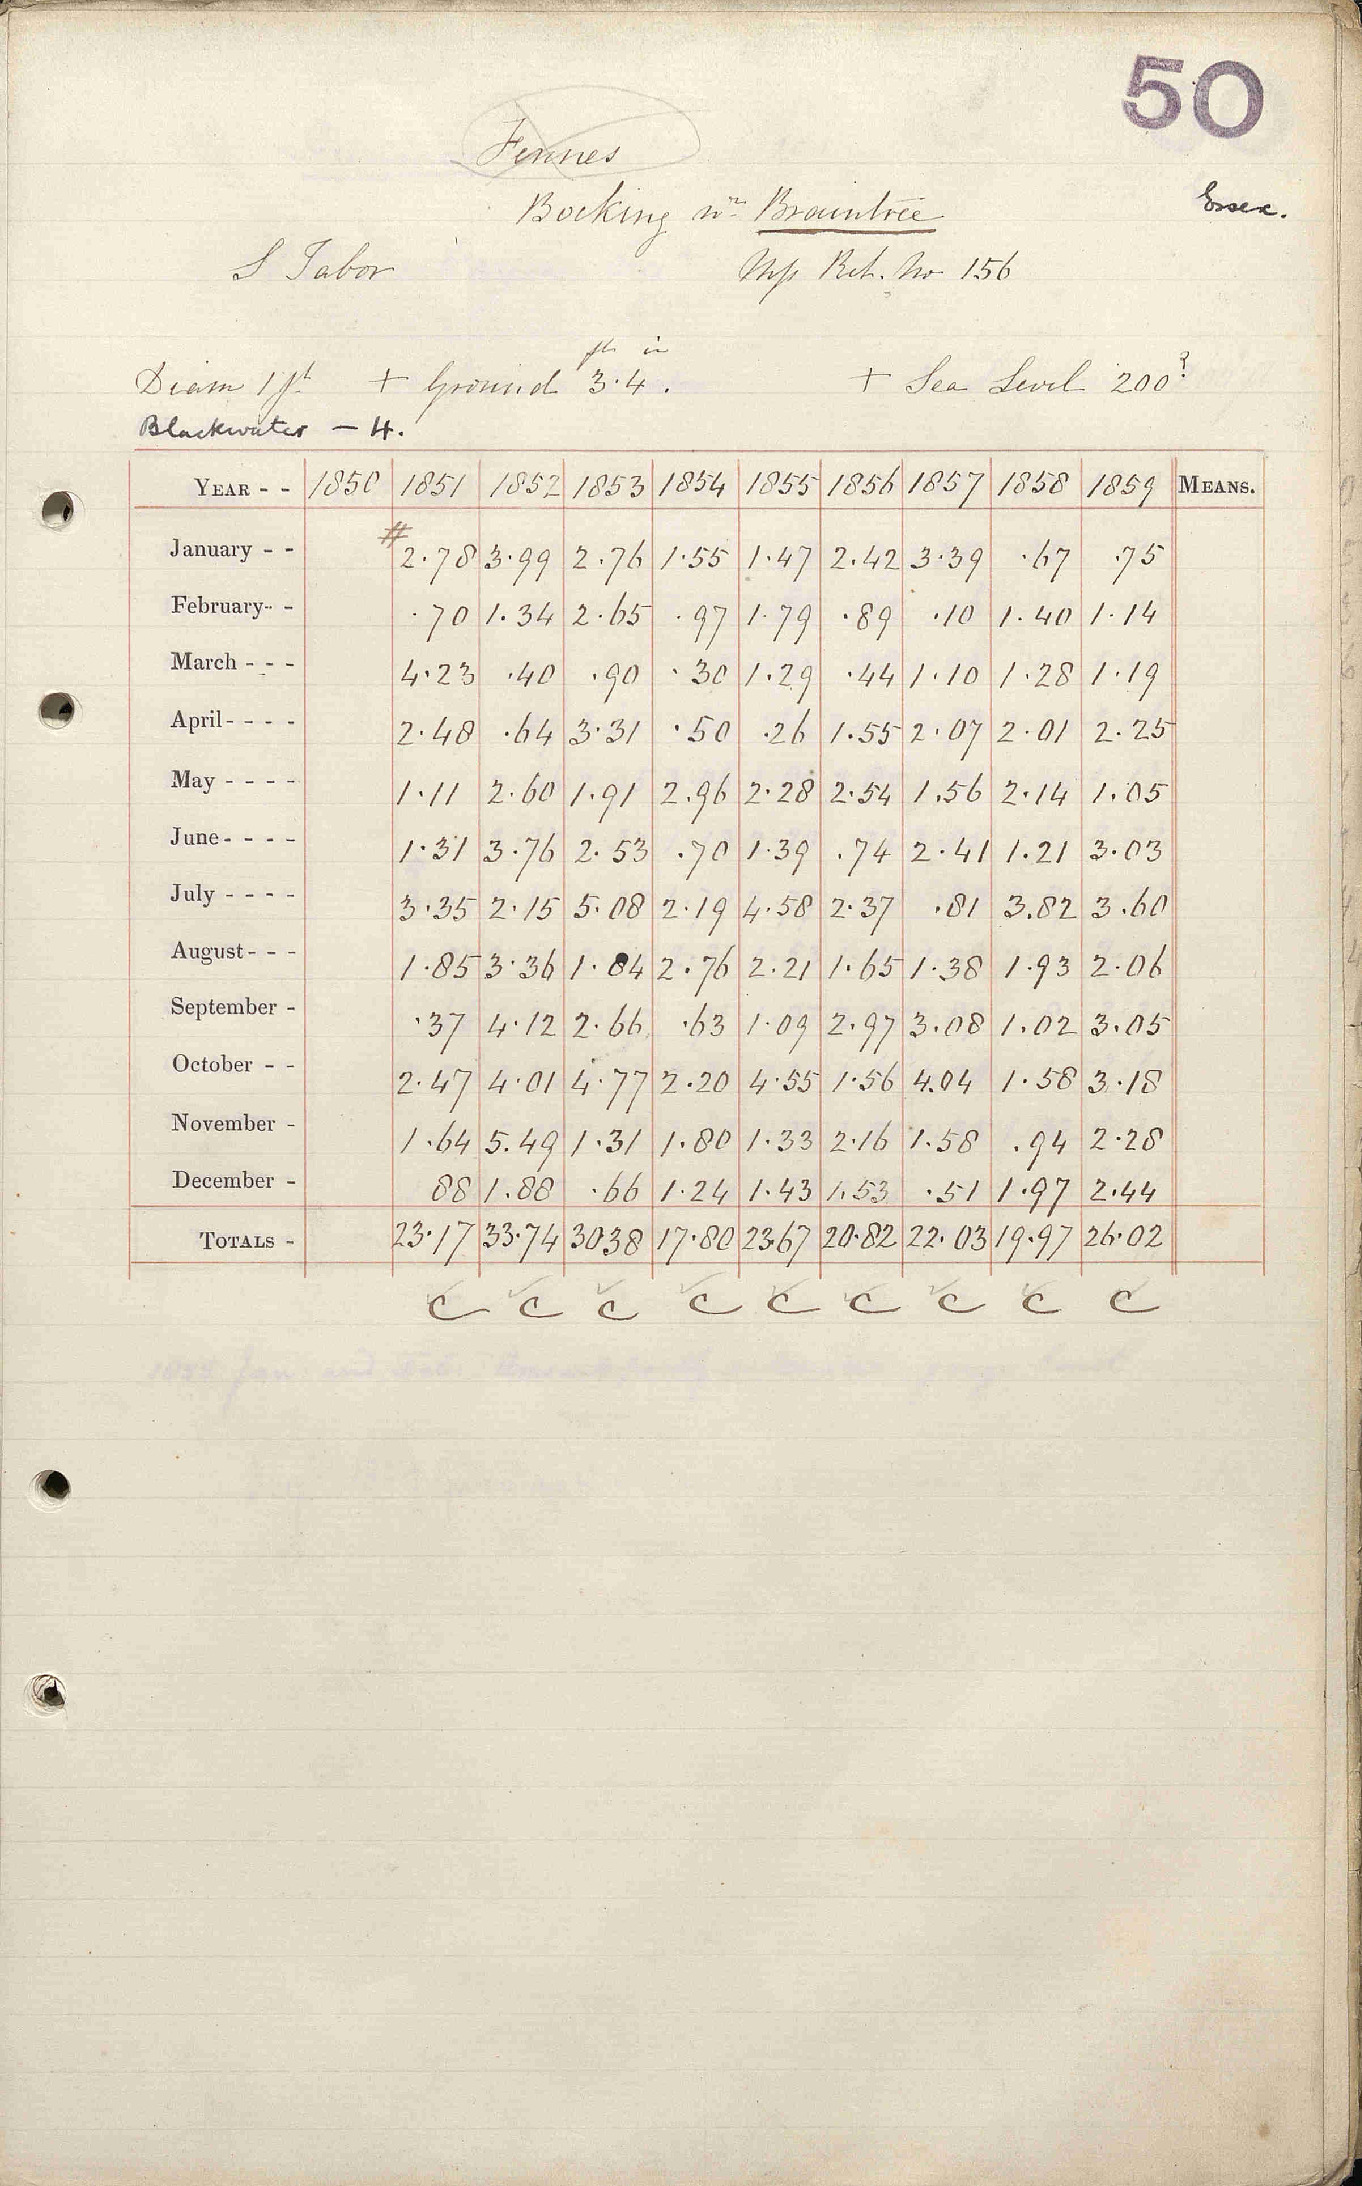 50
Fennes
Bocking nr Braintree
Essex.
S Tabor
Mss Ret. No 156
ft in
Diam 1 ft + Ground 3.4. + Sea Level 200?
Blackwater - 4.
YEAR - - 1850 1851 1852 1853 1854 1855 1856 1857 1858 1859 MEANS.
January - - # 2.78 3.99 2.76 1.55 1.47 2.42 3.39 .67 .75
February - - .70 1.34 2.65 .97 1.79 .89 .10 1.40 1.14
March - - - 4.23 .40 .90 .30 1.29 .44 1.10 1.28 1.19
April - - - - 2.48 .64 3.31 .50 .26 1.55 2.07 2.01 2.25
May - - - - 1.11 2.60 1.91 2.96 2.28 2.54 1.56 2.14 1.05
June - - - - 1.31 3.76 2.53 .70 1.39 .74 2.41 1.21 3.03
July - - - - 3.35 2.15 5.08 2.19 4.58 2.37 .81 3.82 3.60
August - - - 1.85 3.36 1.84 2.76 2.21 1.65 1.38 1.93 2.06
September - .37 4.12 2.66 .63 1.09 2.97 3.08 1.02 3.05
October - - 2.47 4.01 4.77 2.20 4.55 1.56 4.04 1.58 3.18
November - 1.64 5.49 1.31 1.80 1.33 2.16 1.58 .94 2.28
December - 88 1.88 .66 1.24 1.43 1.53 .51 1.97 2.44
TOTALS - 23.17 33.74 3038 17.80 2367 20.82 22.03 19.97 26.02
C C C C C C C C C